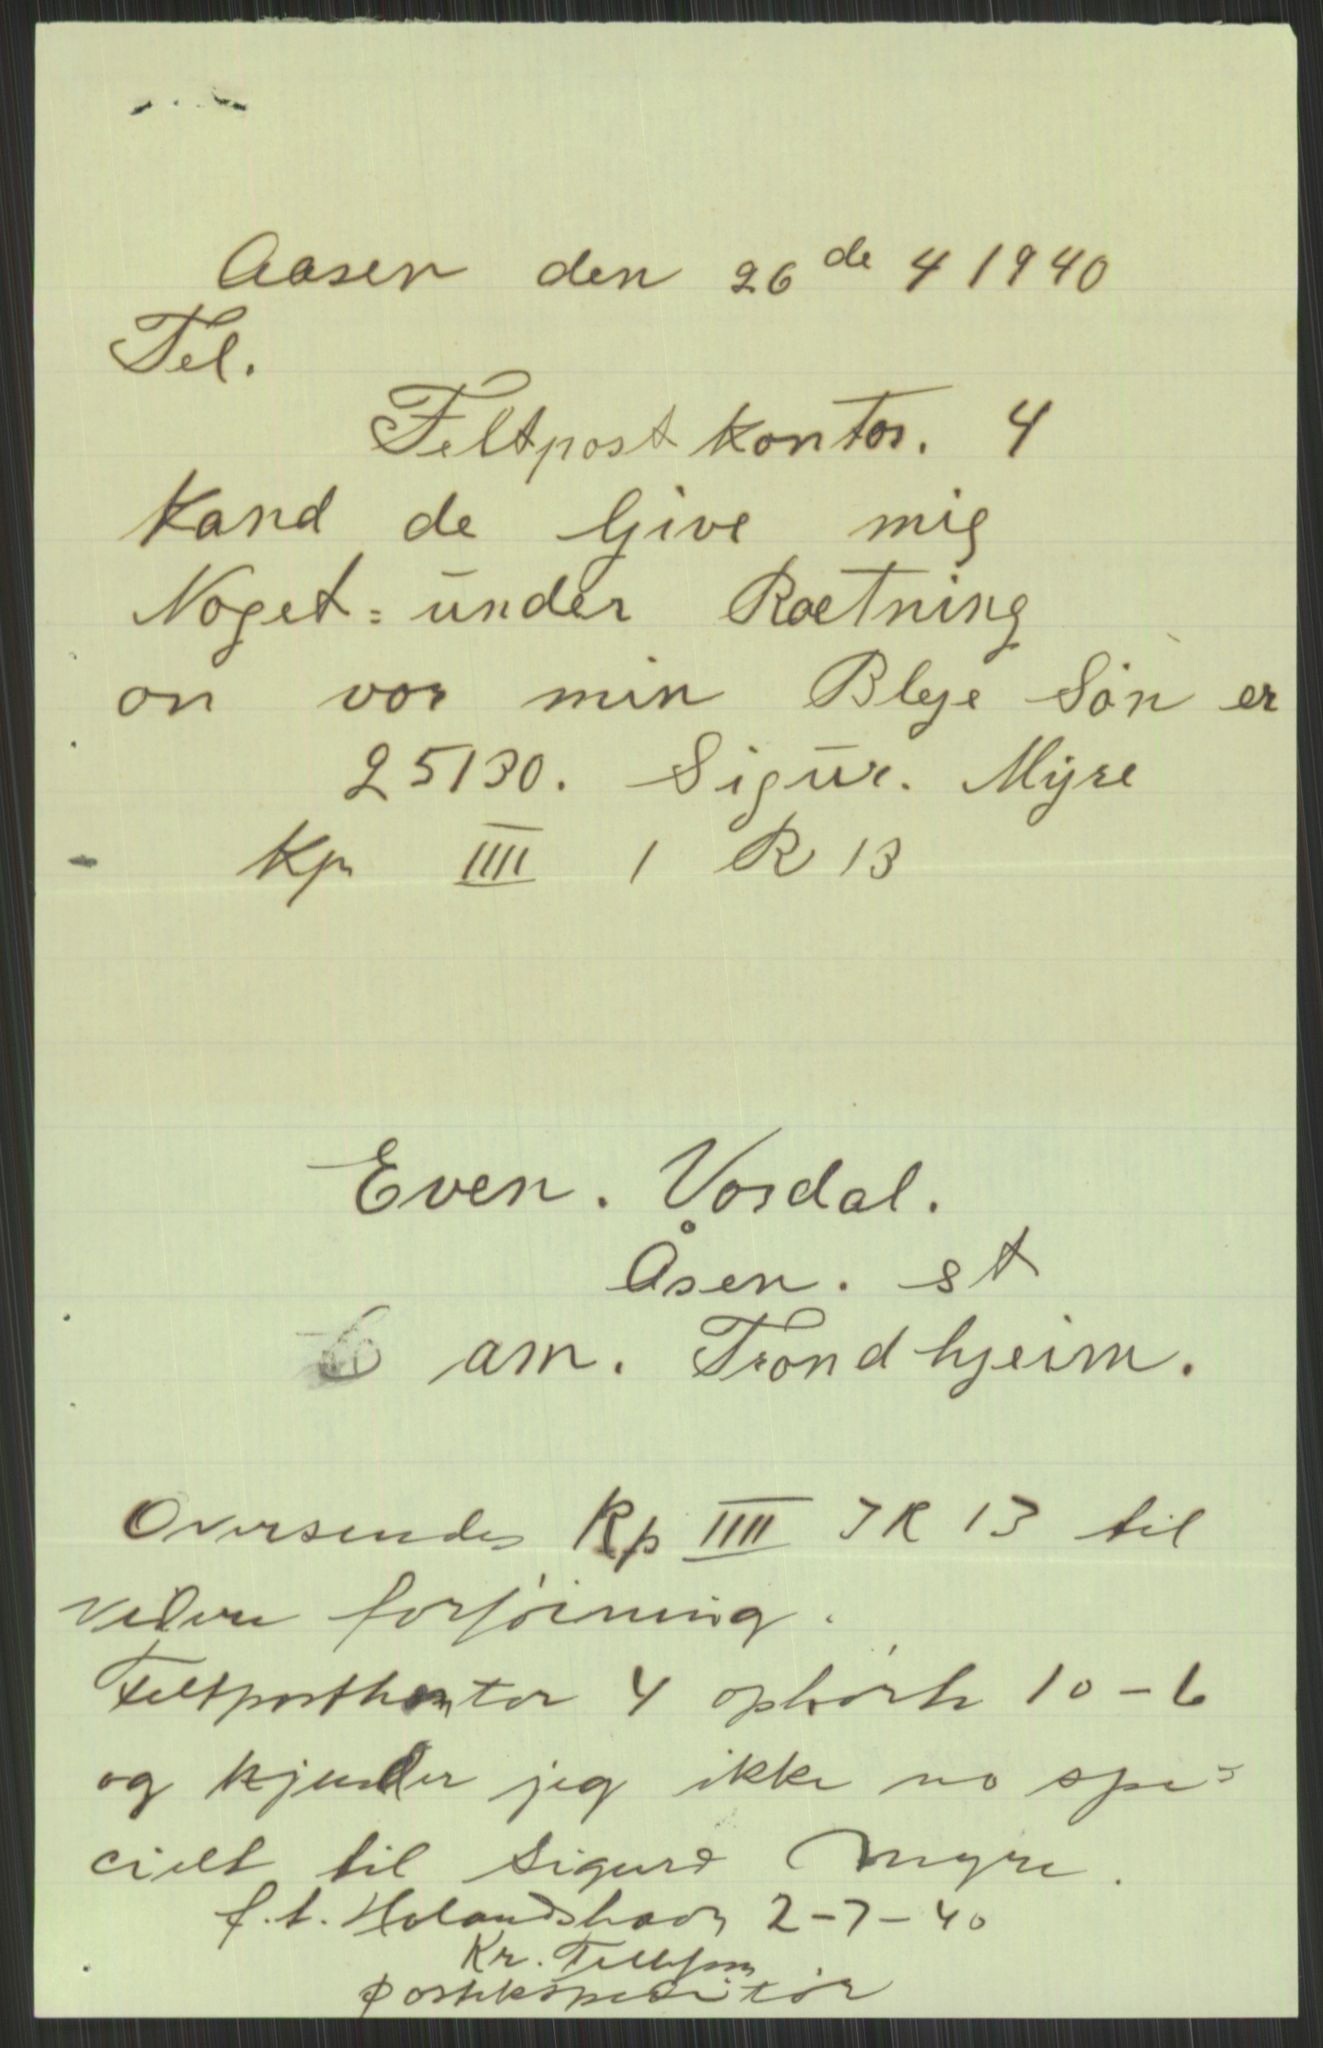 Aasen den 26 de 4 1940
Tel.
Feltpost kontor. 4
Kand de Give mig
Noget = under Raetning
om vor min Bleje Søn er
25130. Sigur. Myre
Kp IIII I R 13
Even. Vordal.
Åsen. st
am. Trondhjeim.
Oversendes Kp IIII IR 13 til
videre forføining.
Feltpostkontor 4 ophørte 10-6
og kjender jeg ikke no spe=
cielt til Sigurd Myre.
f.t. Holandshavn 2-7-40
Kr.
postekspeditør